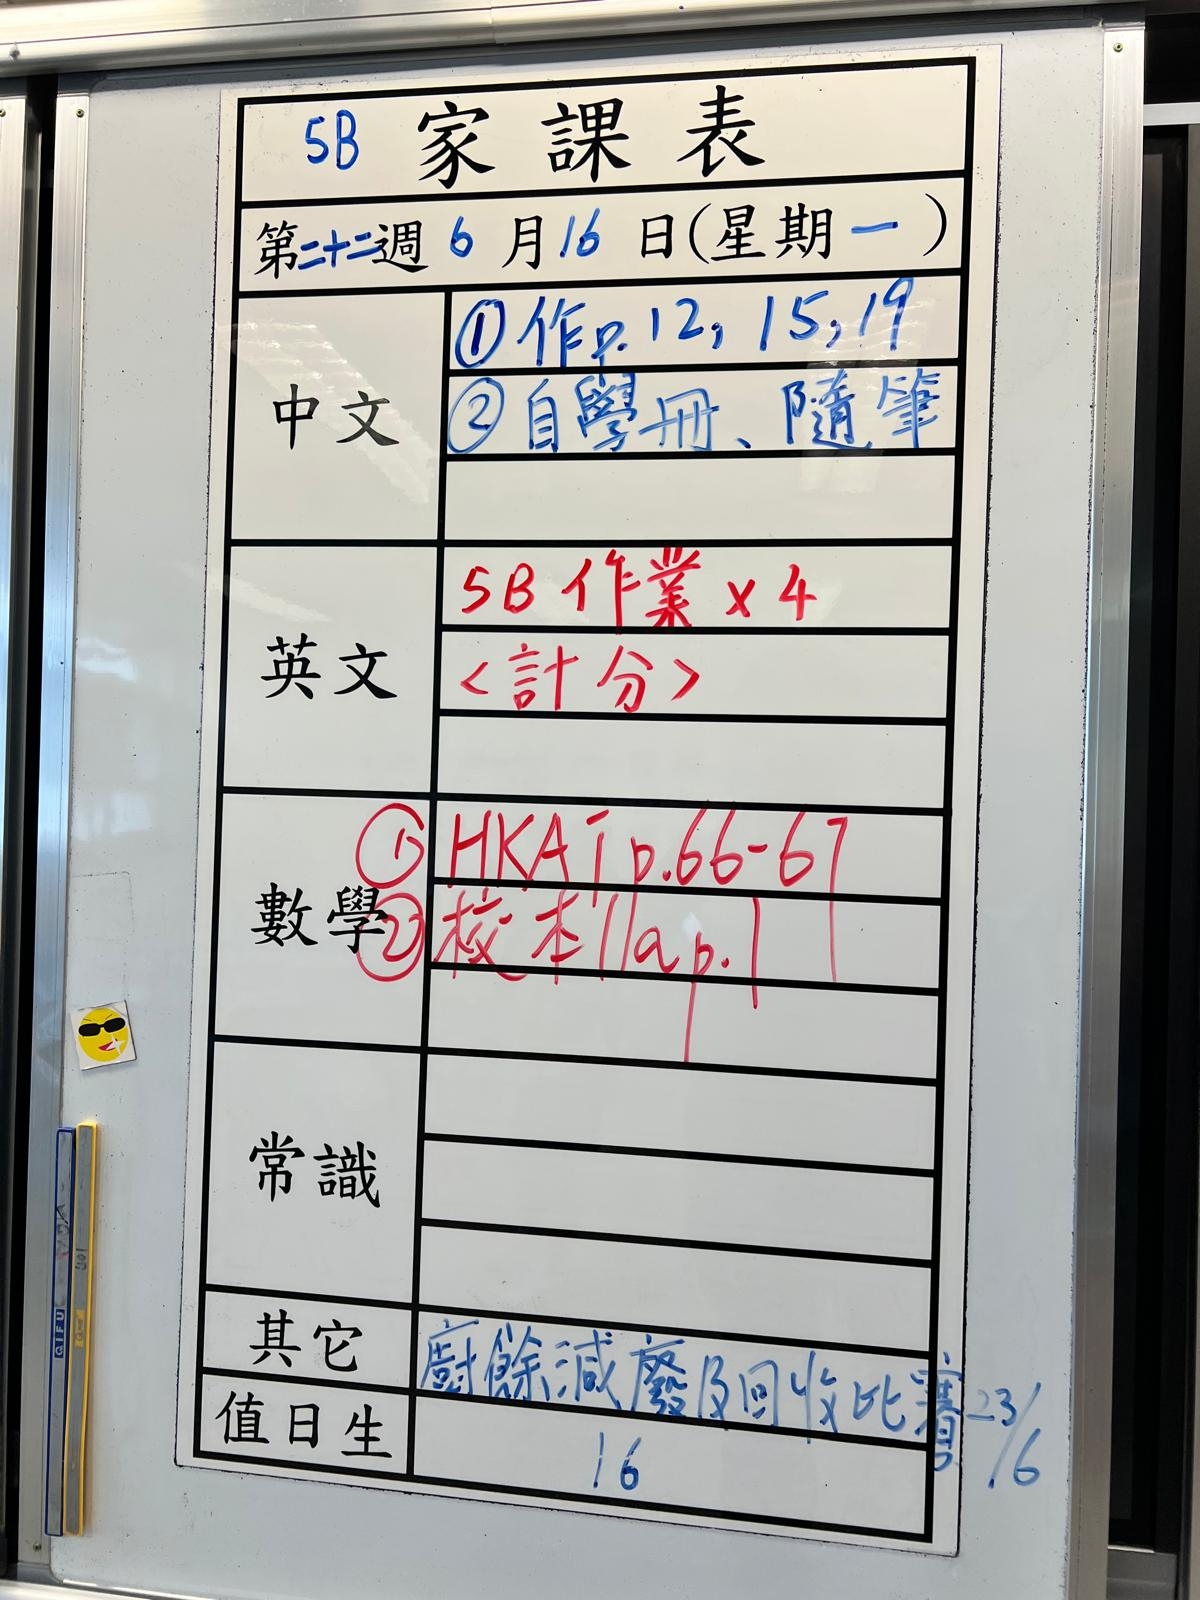 5B 家課表
第二十二週 6月16日(星期一)
中文
①作p.12, 15, 19
②自學冊、隨筆
英文
5B 作業 x 4
<計分>
數學
① HKAT p.66-67
② 校本11a p.1
常識
其它
廚餘減廢及回收比賽23/6
值日生
16
GIFU